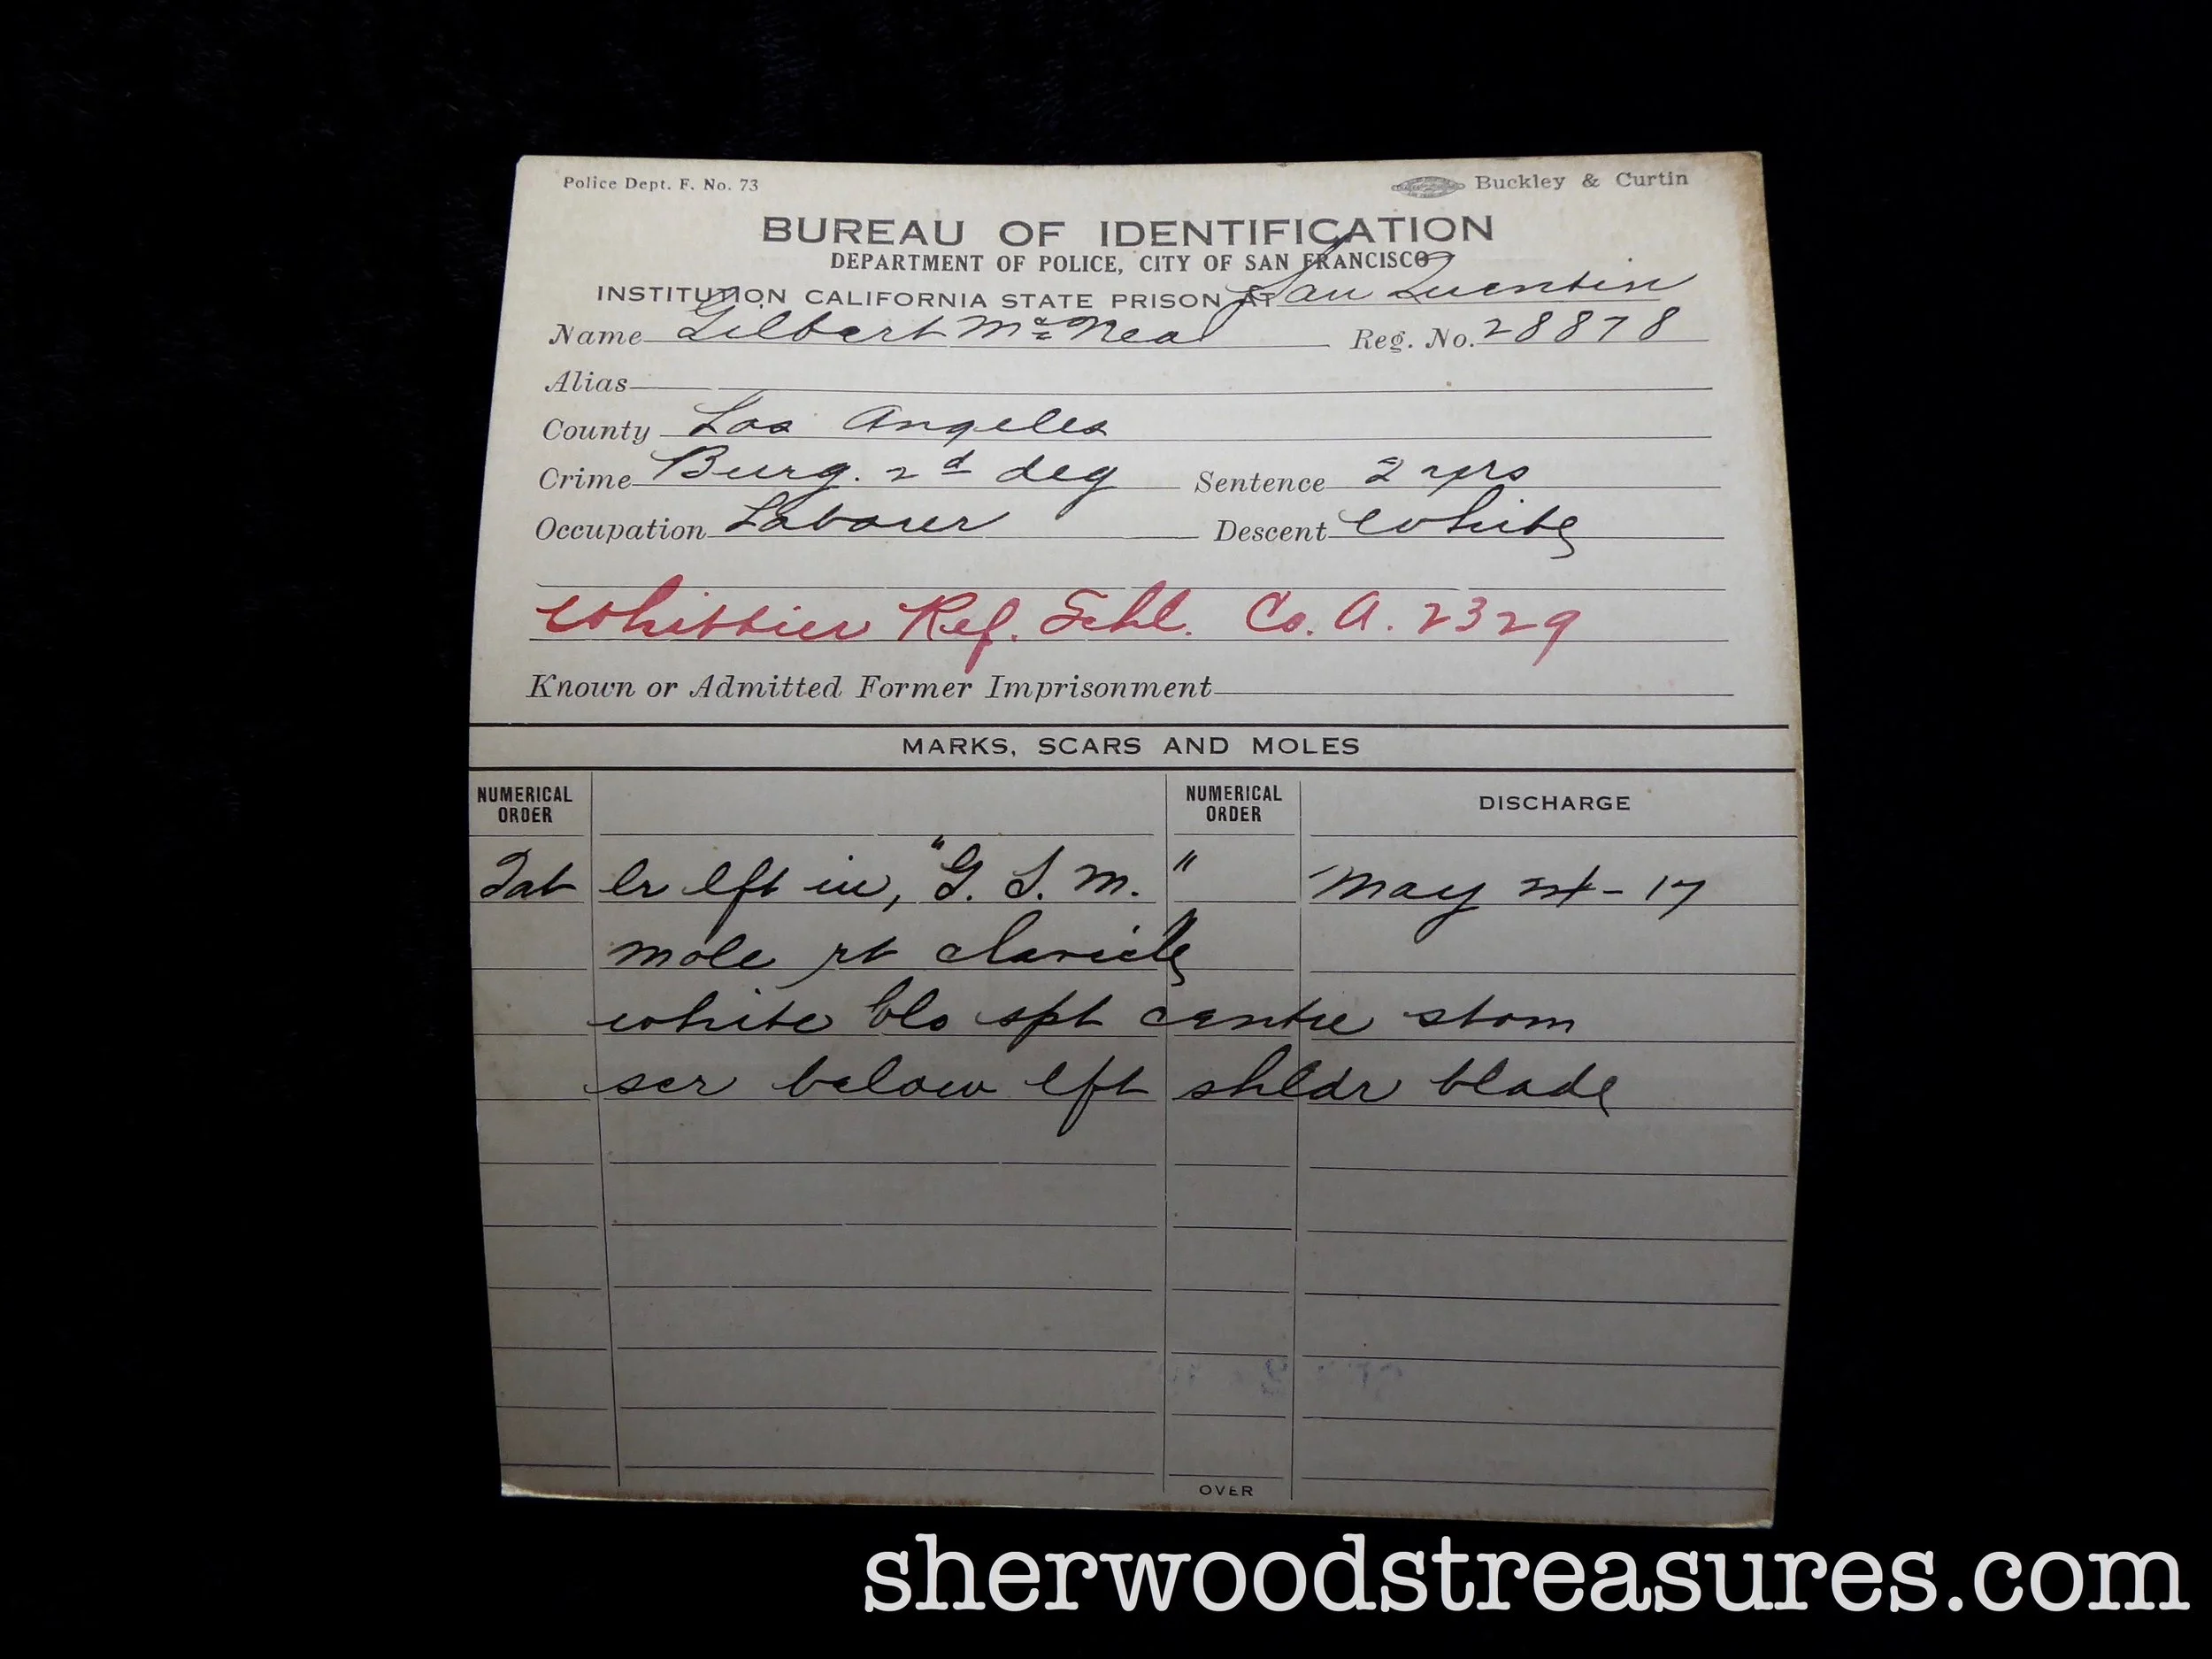 Police Dept. F. No. 73 Buckley & Curtin
BUREAU OF IDENTIFICATION
DEPARTMENT OF POLICE, CITY OF SAN FRANCISCO
INSTITUTION CALIFORNIA STATE PRISON AT San Quentin
Name Gilbert McNeal Reg. No. 28878
Alias
County Los Angeles
Crime Burg. 2d deg Sentence 2 yrs
Occupation Laborer Descent White
Whittier Ref. Schl. Co. A. 2329
Known or Admitted Former Imprisonment
MARKS, SCARS AND MOLES
NUMERICAL ORDER NUMERICAL ORDER DISCHARGE
Tat lr lft in, "G. S. M." May - 17
mole rt clavicle
white blo spt centre stom
scr below lft shldr blade
OVER
sherwoodstreasures.com